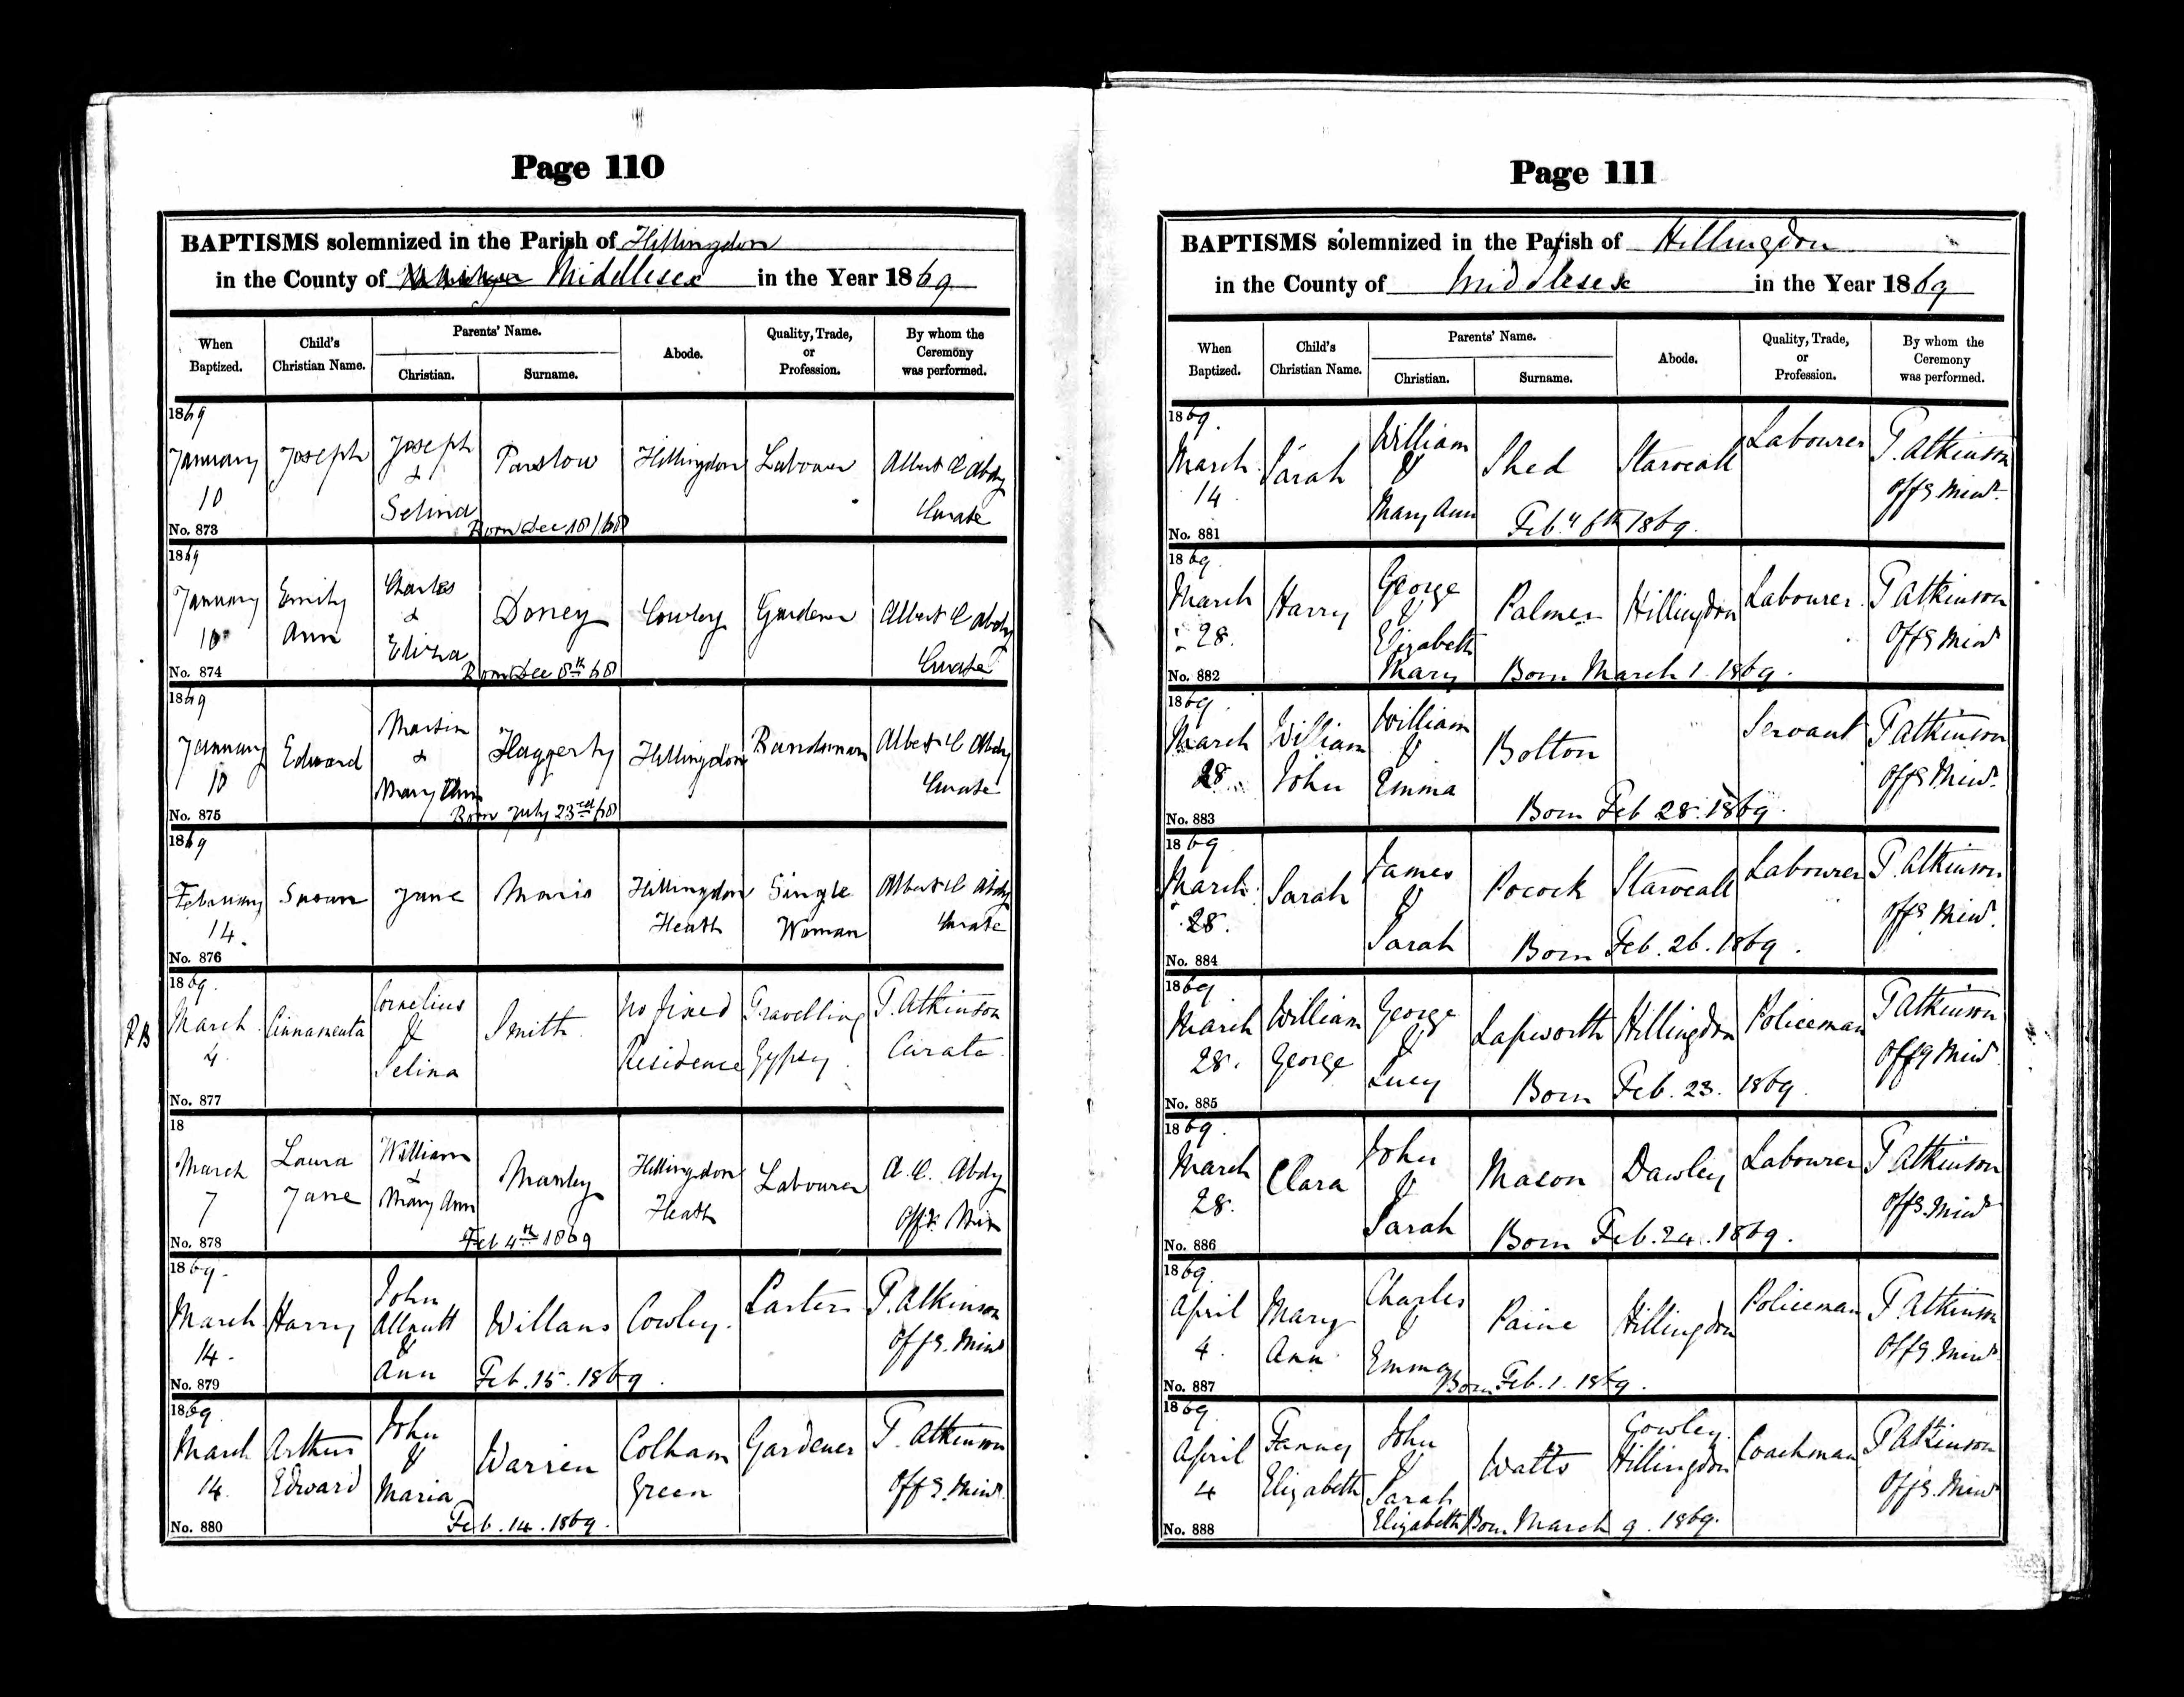 Page 110
BAPTISMS solemnized in the Parish of Hillingdon
in the County of Middlesex in the Year 1869
When Baptized.
Child's Christian Name.
Parents' Name.
Christian.
Surname.
Abode.
Quality, Trade, or Profession.
By whom the Ceremony was performed.
1869
January 10
No. 873
Joseph
Joseph & Selina
Parslow
Born Dec 18/68
Hillingdon
Labourer
Albert C Abdy
Curate
1869
January 10
No. 874
Emily Ann
Charles & Eliza
Doney
Born Dec 8th 68
Cowley
Gardener
Albert C Abdy
Curate
1869
January 10
No. 875
Edward
Martin & Mary Ann
Haggerty
Born July 23rd/68
Hillingdon
Bandsman
Albert C Abdy
Curate
1869
February 14.
No. 876
Susan
Jane
Hillingdon Heath
Single Woman
Albert C Abdy
Curate
RB
1869.
March 4.
No. 877
Cinnamenta
Cornelius & Selina
Smith
No fixed Residence
Travelling Gypsy.
T. Atkinson
Curate.
18
March 7
No. 878
Laura Jane
William & Mary Ann
Manley
Feb 4th 1869
Hillingdon Heath
Labourer
A. C. Abdy
Offg Min
1869.
March 14.
No. 879
Harry
John Allnutt & Ann
Willans
Feb. 15. 1869.
Cowley.
T. Atkinson
Offg. Minr
1869
March 14.
No. 880
Arthur Edward
John & Maria
Warren
Feb. 14. 1869.
Colham Green
Gardener
T. Atkinson
Offg. Minr
Page 111
BAPTISMS solemnized in the Parish of Hillingdon
in the County of Middlesex in the Year 1869
When Baptized.
Child's Christian Name.
Parents' Name.
Christian.
Surname.
Abode.
Quality, Trade, or Profession.
By whom the Ceremony was performed.
1869.
March 14
No. 881
Sarah
William & Mary Ann
Shed
Feby 6th 1869.
Starveall
Labourer
T. Atkinson
Offg Minr.
1869.
March 28.
No. 882
Harry
George & Elizabeth Mary
Palmer
Born March 1. 1869.
Hillingdon
Labourer.
T Atkinson
Offg Minr
1869.
March 28.
No. 883
William John
William & Emma
Bolton
Born Feb 28. 1869.
Servant
T Atkinson
Offg Minr.
1869
March 28.
No. 884
Sarah
James & Sarah
Pocock
Born Feb. 26. 1869.
Starveall
Labourer
T. Atkinson
Offg Minr.
1869
March 28.
No. 885
William George
George & Lucy
Lapworth
Born Feb. 23. 1869.
Hillingdon
Policeman
T Atkinson
Offg Minr.
1869.
March 28.
No. 886
Clara
John & Sarah
Mason
Born Feb. 24. 1869.
Dawley
Labourer
T Atkinson
Offg. Minr
1869.
April 4.
No. 887
Mary Ann
Charles & Emma
Paine
Born Feb. 1. 1869.
Hillingdon
Policeman
T Atkinson
Offg. Minr
1869
April 4
No. 888
Fanny Elizabeth
John & Sarah Elizabeth
Watts
Born March 9. 1869.
Cowley. Hillingdon
Coachman
T Atkinson
Offg. Minr